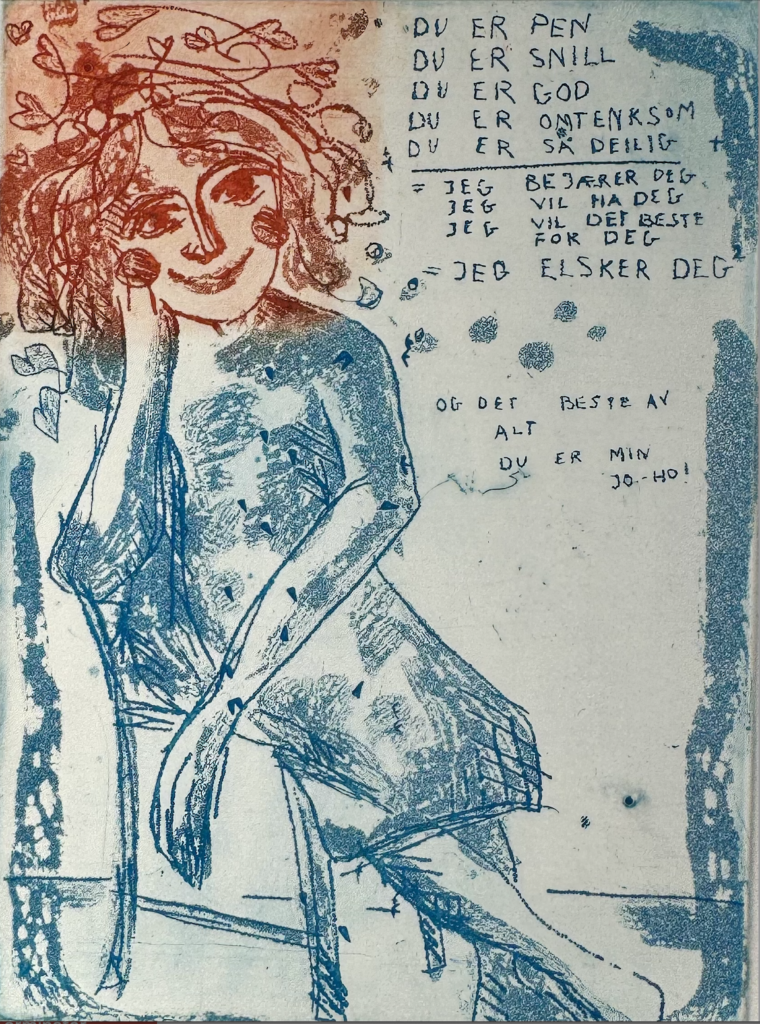 DU ER PEN
DU ER SNILL
DU ER GOD
DU ER OMTENKSOM
DU ER SÅ DEILIG +
= JEG BEJÆRER DEG
JEG VIL HA DEG
JEG VIL DET BESTE
FOR DEG
= JEG ELSKER DEG²
OG DET BESTE AV
ALT
DU ER MIN
JO-HO!